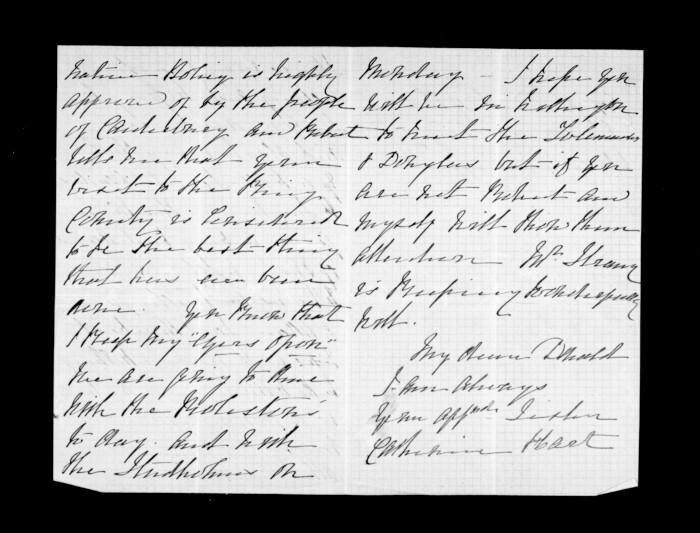 native Policy is highly
approved of by the people
of Canterbury and Robert
tells me that your
visit to the King
County is considered
to be the best thing
that has ever been
done. You know that
I keep my "Eyes open"
We are going to dine
with the Rolestons
to day. and with
the Studholmes on
Monday - I hope you
will be in Wellington
to meet the
& Douglas but if you
are not Robert and
myself will show them
attention Mr. Strang
is keeping
well.
My dear Donald
I am always
your affnte Sister
Catherine Hart